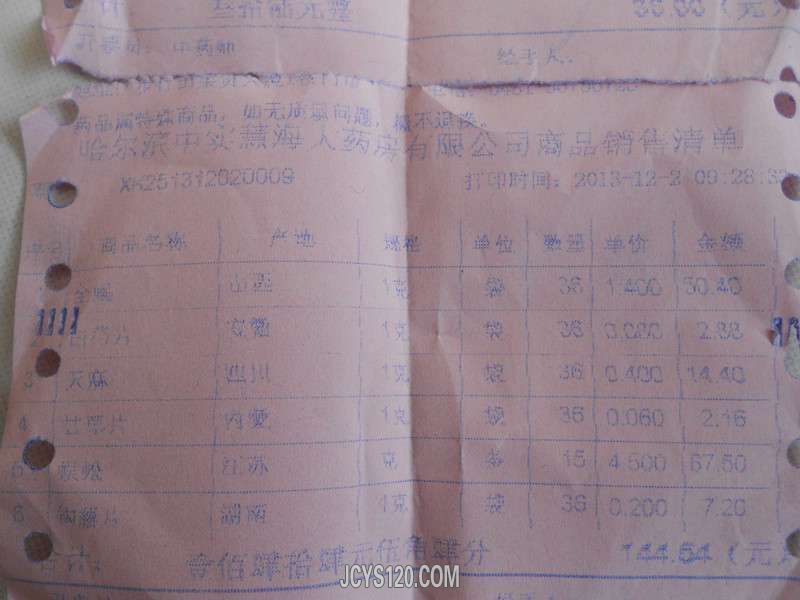 开票员: 中药部
经手人:
药品属特殊商品, 如无质量问题, 概不退换。
哈尔滨市实慧海人药房有限公司商品销售清单
XK251312020009
打印时间: 2013-12-2 09:28:
商品名称 产地 规格 单位 数量 单价 金额
全蝎 1克 袋 36 1.400 50.40
2 白芍片 安徽 1克 袋 36 0.080 2.88
3 天麻 四川 1克 袋 36 0.400 14.40
4 甘草片 内蒙 1克 袋 36 0.060 2.16
5 蜈蚣 江苏 克 条 15 4.500 67.50
6 钩藤片 湖南 1克 袋 36 0.200 7.20
合计: 壹佰肆拾肆元伍角肆分 144.54 (元
JCYS120.COM